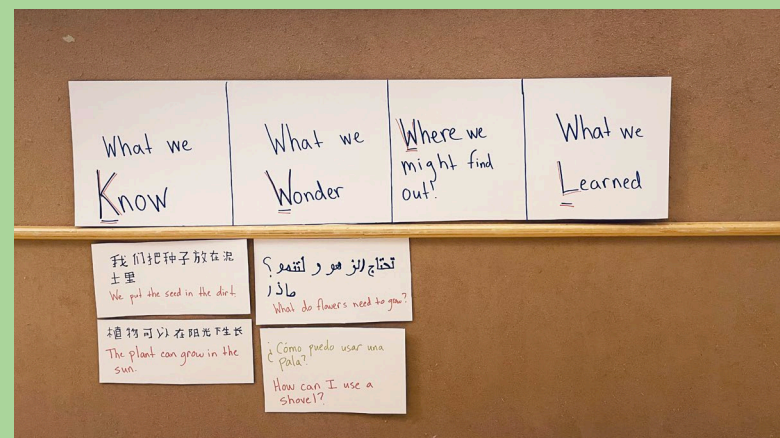 What we
Know
What we
Wonder
Where we
might find
out?
What we
Learned
我们把种子放在泥
土里
We put the seed in the dirt.
植物可以在阳光下生长
The plant can grow in the
sun.
تحتاج الزهور لتنمو؟
ماذا
What do flowers need to grow?
¿Cómo puedo usar una
pala?
How can I use a
shovel?